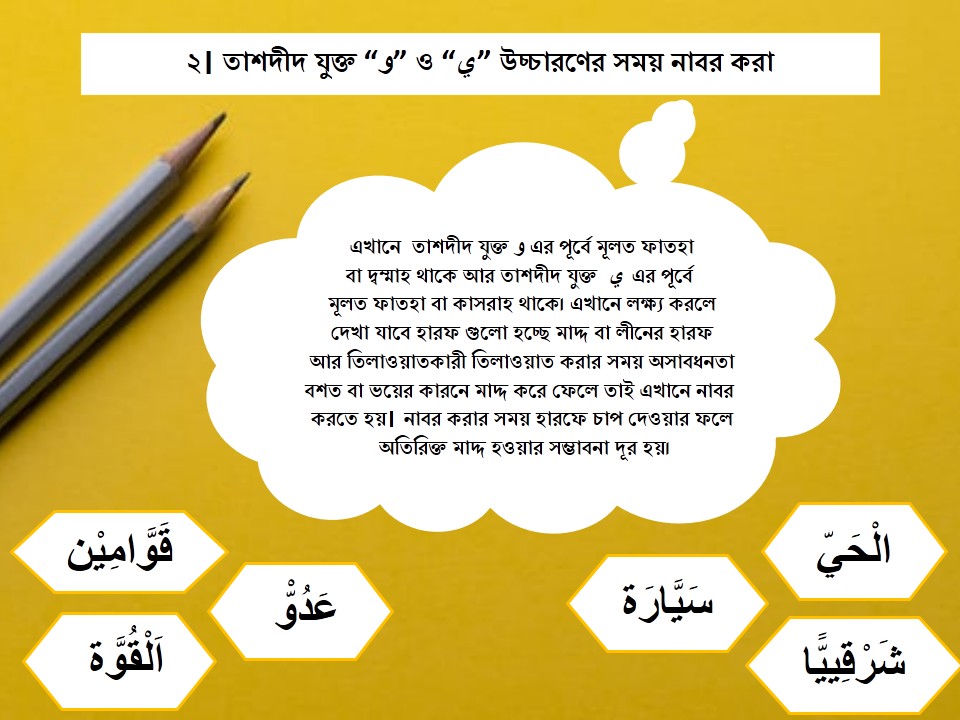 ২| তাশদীদ যুক্ত “و” ও “ي” উচ্চারণের সময় নাবর করা
এখানে তাশদীদ যুক্ত و এর পূর্বে মূলত ফাতহা
বা দ্বম্মাহ থাকে আর তাশদীদ যুক্ত ي এর পূর্বে
মূলত ফাতহা বা কাসরাহ থাকে। এখানে লক্ষ্য করলে
দেখা যাবে হারফ গুলো হচ্ছে মাদ্দ বা লীনের হারফ
আর তিলাওয়াতকারী তিলাওয়াত করার সময় অসাবধনতা
বশত বা ভয়ের কারনে মাদ্দ করে ফেলে তাই এখানে নাবর
করতে হয়| নাবর করার সময় হারফে চাপ দেওয়ার ফলে
অতিরিক্ত মাদ্দ হওয়ার সম্ভাবনা দূর হয়।
قَوَّامِيْن
عَدُوّْ
اَلْقُوَّة
الْحَيّ
سَيَّارَة
شَرْقِييًّا